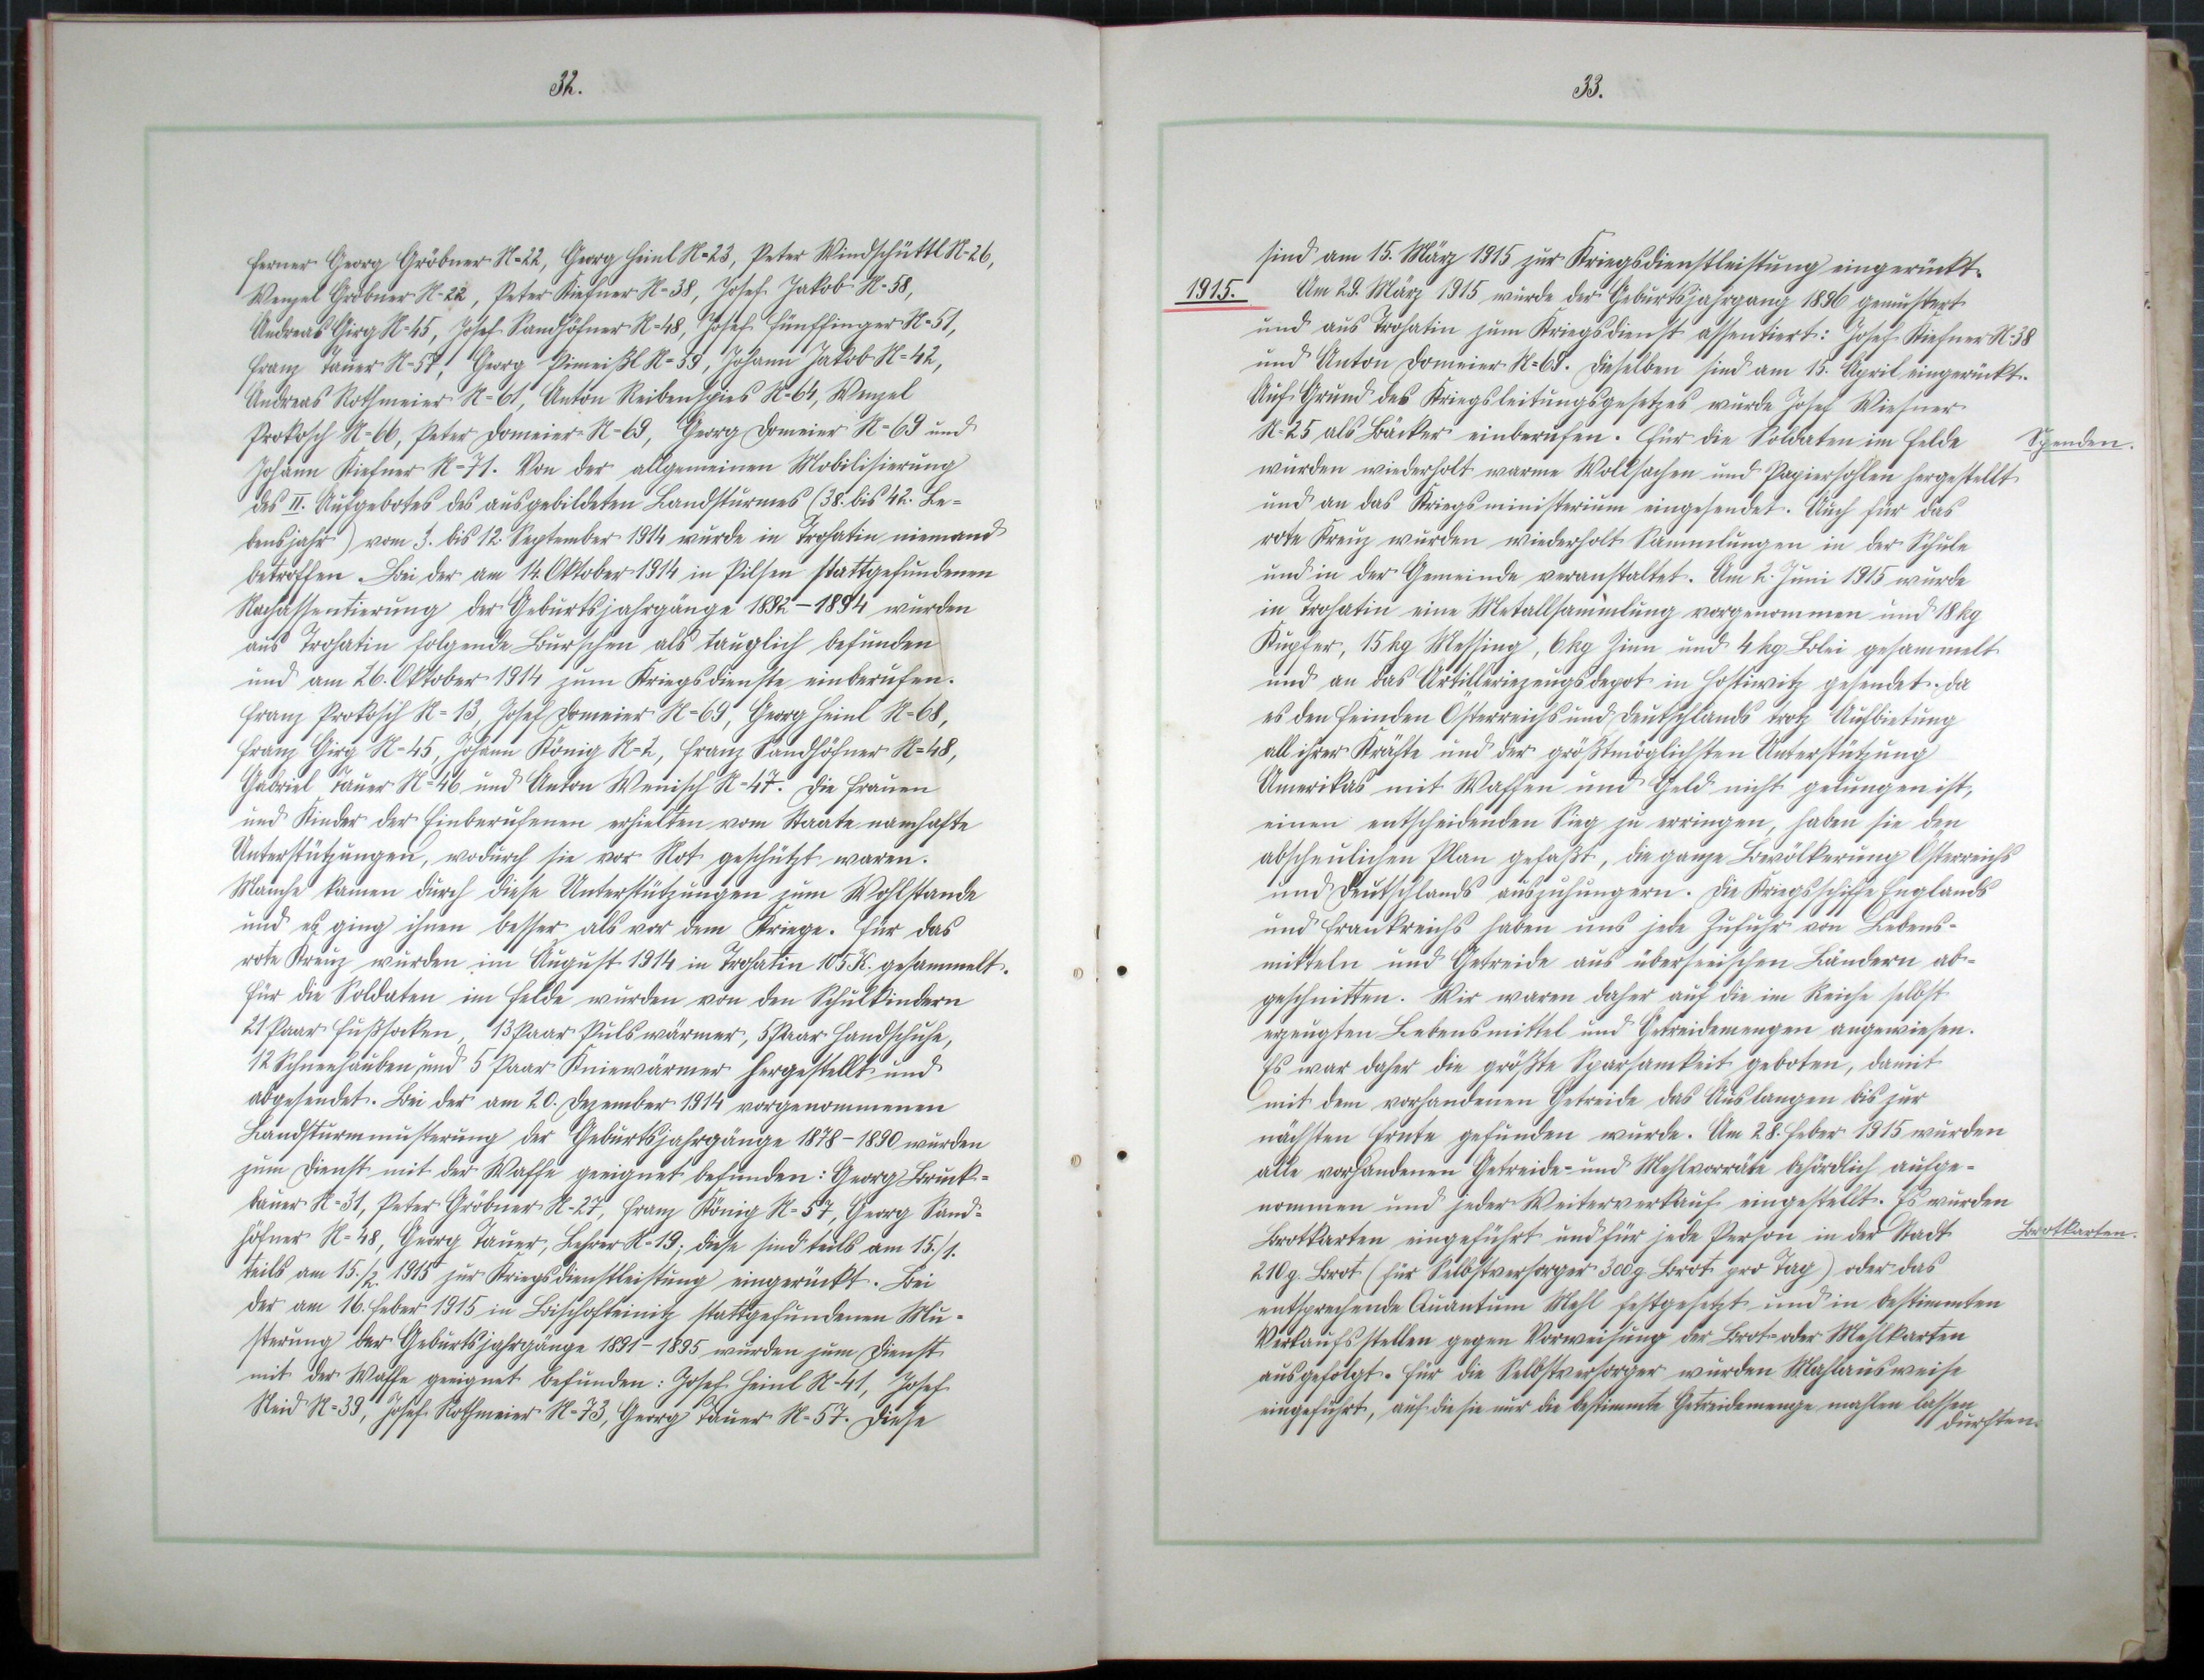 32.
ferner Georg Gröbner N=22, Georg Heinl N=23, Peter Windschüttl N=26,
Wenzel Gröbner N=22, Peter Kiefner N=38, Josef Jakob N=58,
Andreas Girg N=45, Josef Sandhöfner N=48, Josef Fünffinger N=51,
Franz Tauer N=57, Georg Pimeißl N=59, Johann Jakob N=42,
Andreas Rothmeier N=61, Anton Reibenspies N=64, Wenzel
Prokosch N=66, Peter Domeier N=69, Georg Domeier N=69 und
Johann Kiefner N=71. Von der allgemeinen Mobilisierung
des II. Aufgebotes des ausgebildeten Landsturmes (38. bis 42. Le=
bensjahr) vom 3. bis 12. September 1914 wurde in Trohatin niemand
betroffen. Bei der am 14. Oktober 1914 in Pilsen stattgefundenen
Nachassentierung der Geburtsjahrgänge 1892–1894 wurden
aus Trohatin folgende Burschen als tauglich befunden
und am 26. Oktober 1914 zum Kriegsdienste einberufen.
Franz Prokosch N=13, Josef Domeier N=69, Georg Heinl N=68,
Franz Girg N=45, Johann König N=2, Franz Sandhöfner N=48,
Gabriel Tauer N=46 und Anton Wenisch N=47. Die Frauen
und Kinder der Einberufenen erhielten vom Staate namhafte
Unterstützungen, wodurch sie vor Not geschützt waren.
Manche kamen durch diese Unterstützungen zum Wohlstande
und es ging ihnen besser als vor dem Kriege. Für das
rote Kreuz wurden im August 1914 in Trohatin 105 K. gesammelt.
Für die Soldaten im Felde wurden von den Schulkindern
21 Paar Fußsocken, 13 Paar Pulswärmer, 5 Paar Handschuhe,
12 Schneehauben und 5 Paar Kniewärmer hergestellt und
abgesendet. Bei der am 20. Dezember 1914 vorgenommenen
Landsturmmusterung der Geburtsjahrgänge 1878–1890 wurden
zum Dienst mit der Waffe geeignet befunden: Georg Bruck=
bauer N=31, Peter Gröbner N=27, Franz König N=57, Georg Sand=
höfner N=48, Georg Tauer, Lehrer N=19; diese sind teils am 15./1.
teils am 15./2. 1915 zur Kriegsdienstleistung eingerückt. Bei
der am 16. Feber 1915 in Bischofteinitz stattgefundenen Mu=
sterung der Geburtsjahrgänge 1891–1895 wurden zum Dienst
mit der Waffe geeignet befunden: Josef Heinl N=41, Josef
Neid N=39, Josef Rothmeier N=73, Georg Tauer N=57. Diese
33.
sind am 15. März 1915 zur Kriegsdienstleistung eingerückt.
1915. Am 29. März 1915 wurde der Geburtsjahrgang 1896 gemustert
und aus Trohatin zum Kriegsdienst assentiert: Josef Kiefner N=38
und Anton Domeier N=68. Dieselben sind am 15. April eingerückt.
Auf Grund des Kriegsleitungsgesetzes wurde Josef Wiesner
N=25 als Bäcker einberufen. Für die Soldaten im Felde Spenden.
wurden wiederholt warme Wollsachen und Papiersohlen hergestellt
und an das Kriegsministerium eingesendet. Auch für das
rote Kreuz wurden wiederholt Sammlungen in der Schule
und in der Gemeinde veranstaltet. Am 2. Juni 1915 wurde
in Trohatin eine Metallsammlung vorgenommen und 18 kg
Kupfer, 15 kg Messing, 6 kg Zinn und 4 kg Blei gesammelt
und an das Artilleriezeugsdepot in Hostiwitz gesendet. Da
es den Feinden Österreichs und Deutschlands trotz Aufbietung
all ihrer Kräfte und der größtmöglichsten Unterstützung
Amerikas mit Waffen und Geld nicht gelungen ist,
einen entscheidenden Sieg zu erringen, haben sie den
abscheulichen Plan gefaßt, die ganze Bevölkerung Österreichs
und Deutschlands auszuhungern. Die Kriegsschiffe Englands
und Frankreichs haben uns jede Zufuhr von Lebens=
mitteln und Getreide aus überseeischen Ländern ab=
geschnitten. Wir waren daher auf die im Reiche selbst
erzeugten Lebensmittel und Getreidemengen angewiesen.
Es war daher die größte Sparsamkeit geboten, damit
mit dem vorhandenen Getreide das Auslangen bis zur
nächsten Ernte gefunden wurde. Am 28. Feber 1915 wurden
alle vorhandenen Getreide= und Mehlvorräte behördlich aufge=
nommen und jeder Weiterverkauf eingestellt. Es wurden
Brotkarten eingeführt und für jede Person in der Stadt Brotkarten.
210 g. Brot (für Selbstversorger 300 g Brot pro Tag) oder das
entsprechende Quantum Mehl festgesetzt und in bestimmten
Verkaufsstellen gegen Vorweisung der Brot= oder Mehlkarten
ausgefolgt. Für die Selbstversorger wurden Mahlausweise
eingeführt, auf die sie nur die bestimmte Getreidemenge mahlen lassen
durften.